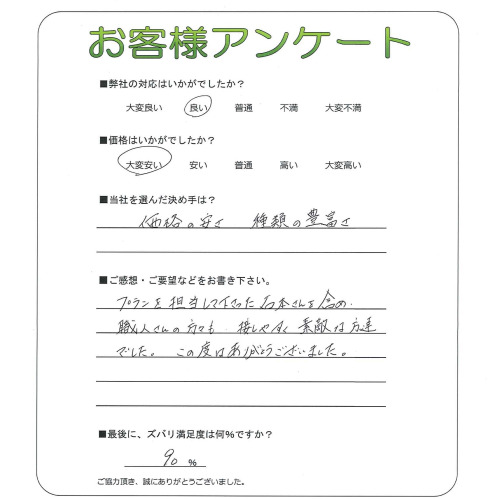 お客様アンケート
■弊社の対応はいかがでしたか？
大変良い 良い 普通 不満 大変不満
■価格はいかがでしたか？
大変安い 安い 普通 高い 大変高い
■当社を選んだ決め手は？
価格の安さ 種類の豊富さ
■ご感想・ご要望などをお書き下さい。
プランを担当して下さった石本さんを含め、
職人さんの方々も、接しやすく素敵な方達
でした。この度はありがとうございました。
■最後に、ズバリ満足度は何％ですか？
90 %
ご協力頂き、誠にありがとうございました。